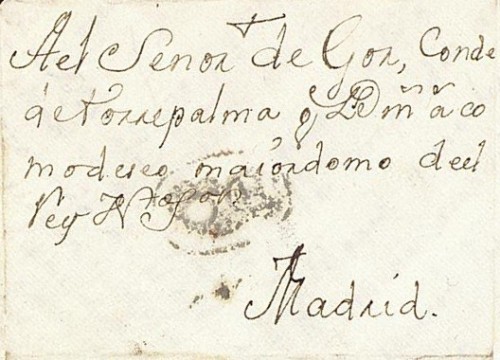 Ael Señor de Gor, Conde
de torrepalma q Dios m.s a.s co
modeseo maiordomo deel
Rey N.tro Señor
Madrid.